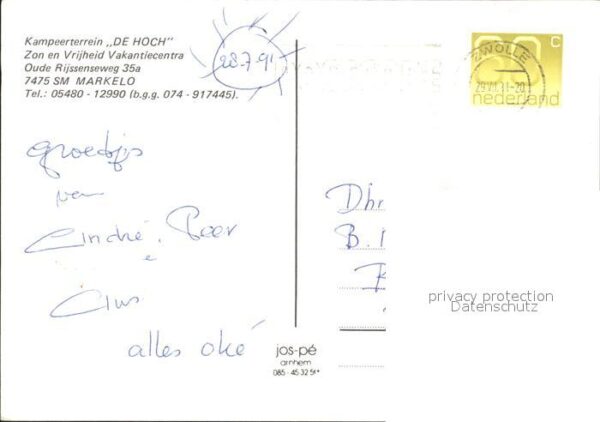 Kampeerterrein „DE HOCH"
Zon en Vrijheid Vakantiecentra
Oude Rijssenseweg 35a
7475 SM MARKELO
Tel.: 05480 - 12990 (b.g.g. 074 - 917445).
28.7.91
ZWOLLE
60 c
nederland
groetjes
van
André, Peer
e
alles oké
jos-pé
arnhem
085 - 45 32 51*
Dhr
B.
privacy protection
Datenschutz